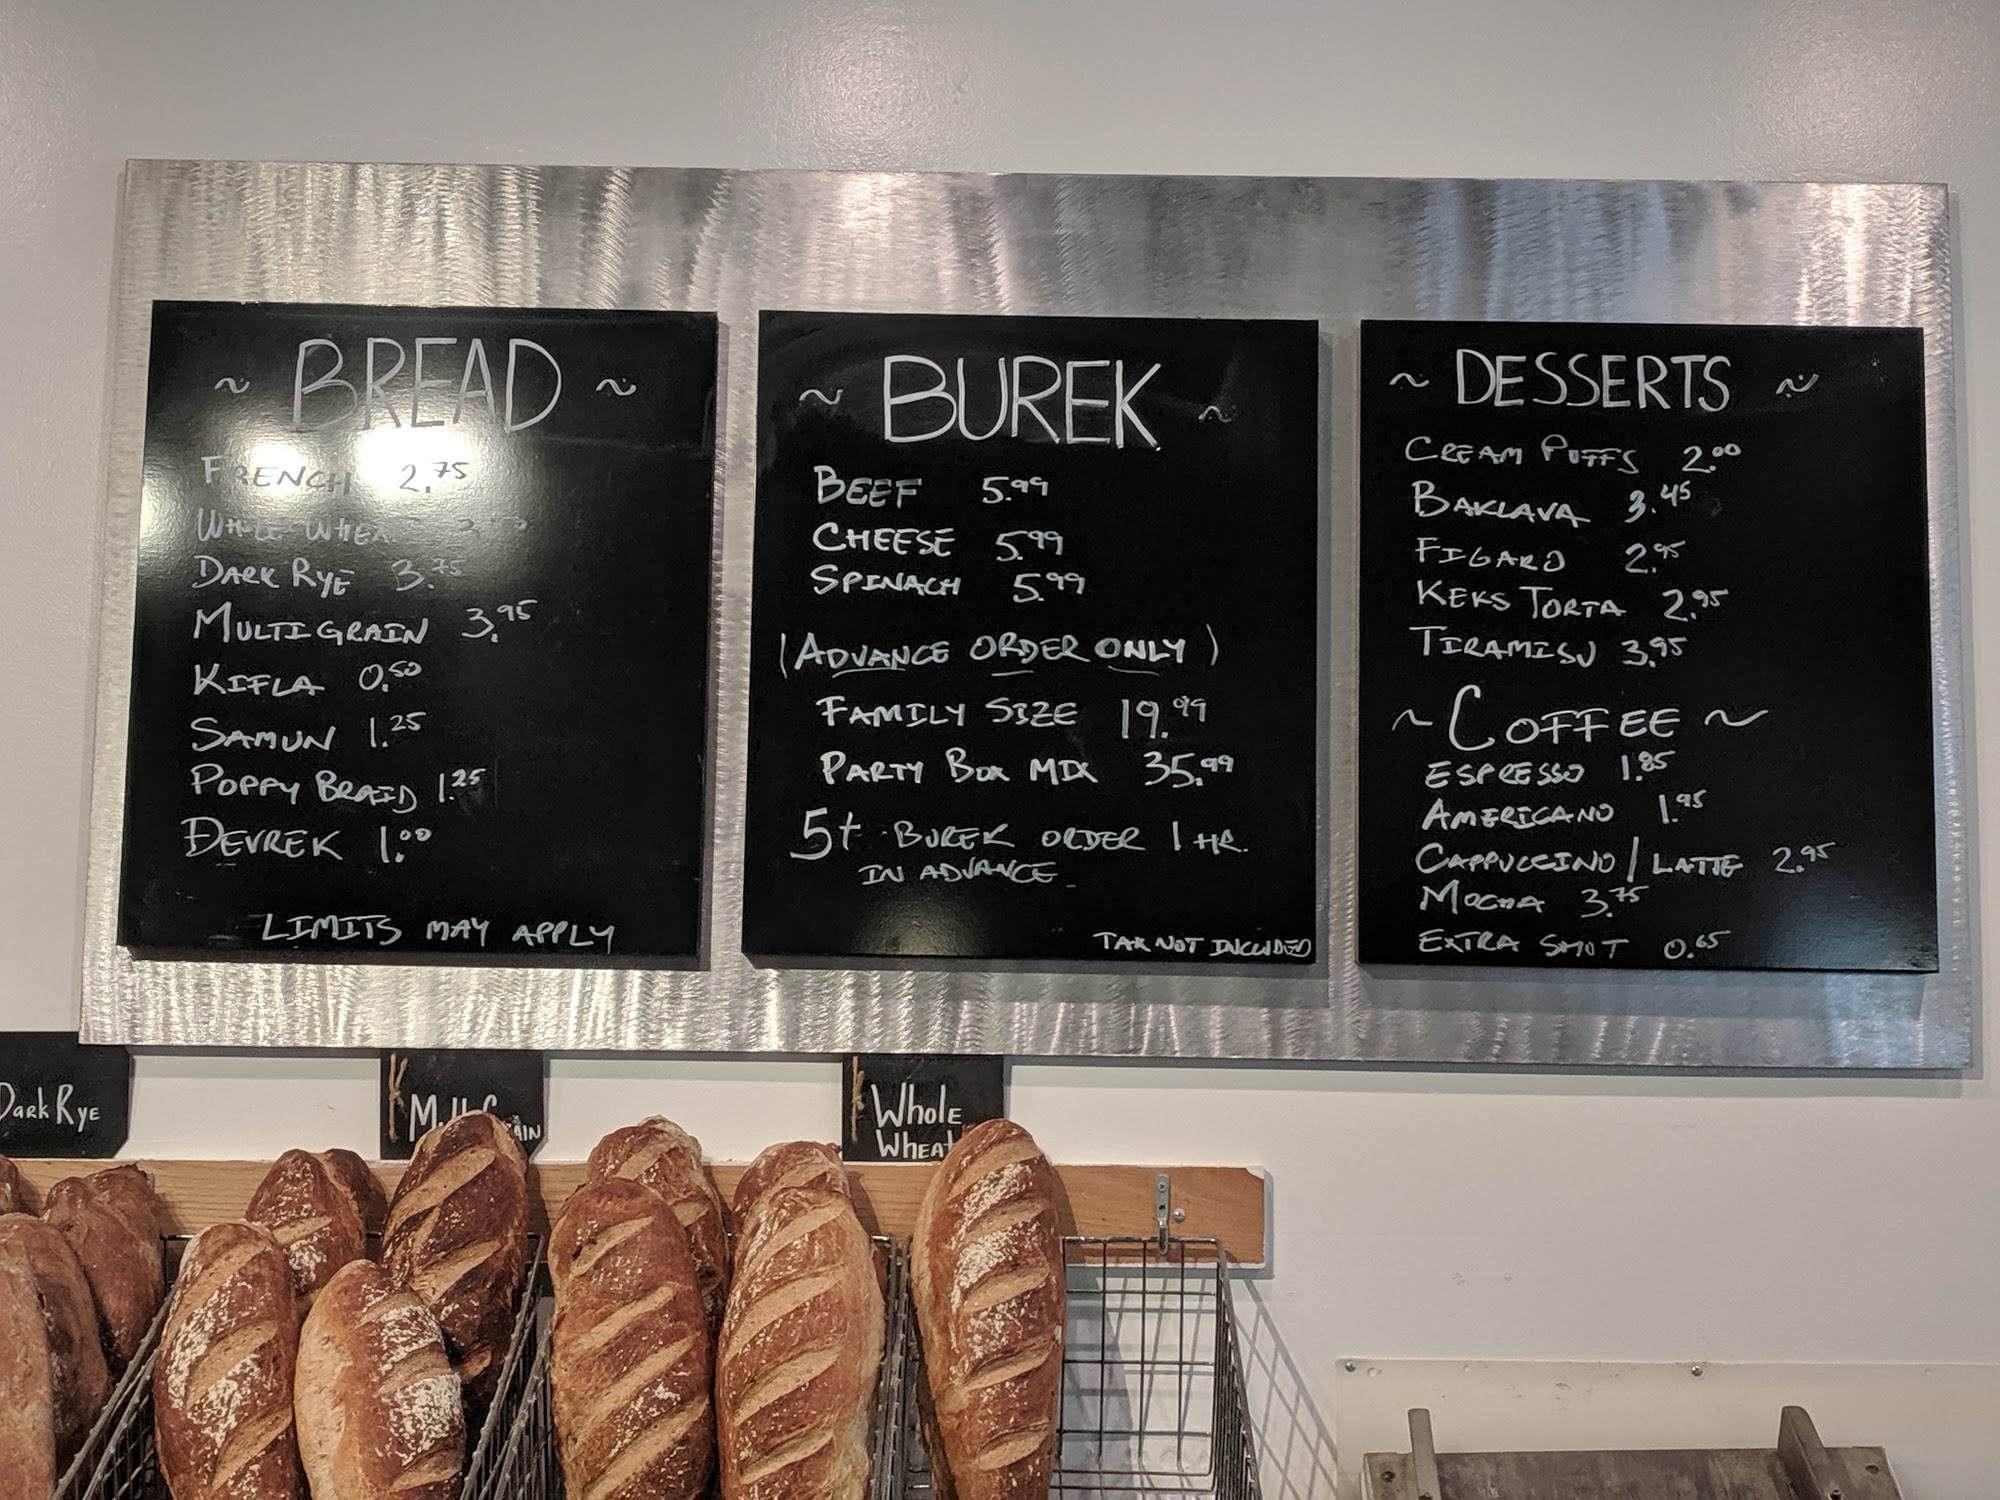 ~ BREAD ~
FRENCH 2.75
WHOLE WHEAT
DARK RYE 3.75
MULTIGRAIN 3.95
KIFLA 0.50
SAMUN 1.25
POPPY BRAID 1.25
DEVREK 1.00
LIMITS MAY APPLY
~ BUREK ~
BEEF 5.99
CHEESE 5.99
SPINACH 5.99
(ADVANCE ORDER ONLY)
FAMILY SIZE 19.99
PARTY BOX MIX 35.99
5+ BUREK ORDER 1 HR.
IN ADVANCE
TAX NOT INCLUDED
~ DESSERTS ~
CREAM PUFFS 2.00
BAKLAVA 3.45
FIGARO 2.95
KEKS TORTA 2.95
TIRAMISU 3.95
~ COFFEE ~
ESPRESSO 1.85
AMERICANO 1.95
CAPPUCCINO / LATTE 2.95
MOCHA 3.75
EXTRA SHOT 0.65
Dark Rye
Whole
Wheat